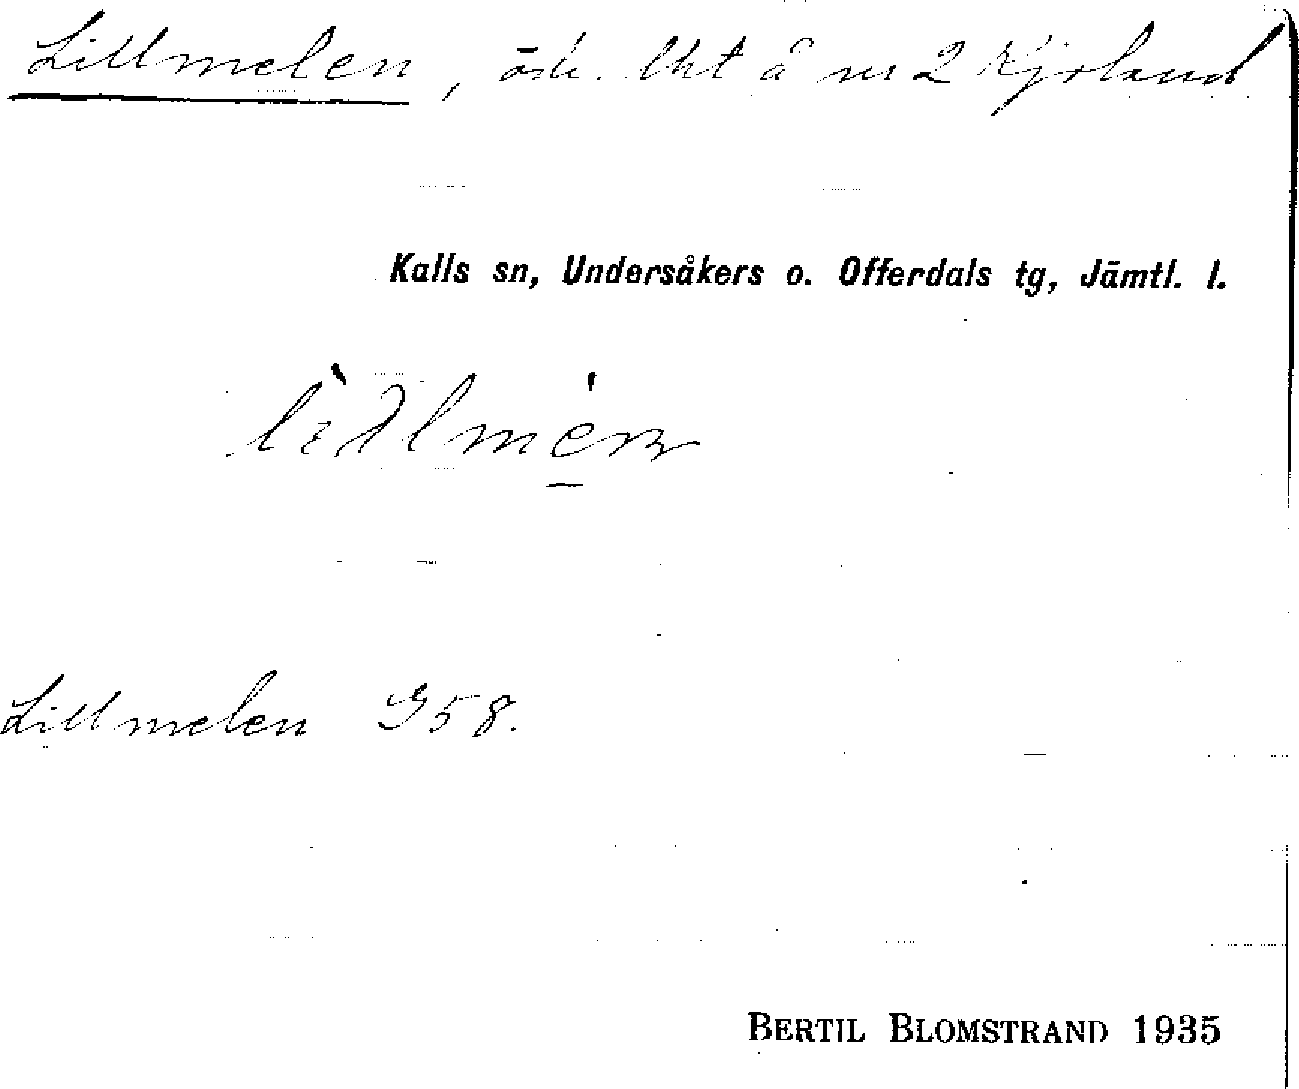 Lillmelen, öde. lht å nr 2 Kjoland
Kalls sn, Undersåkers o. Offerdals tg, Jämtl. l.
Lillmelen G58.
BERTIL BLOMSTRAND 1935